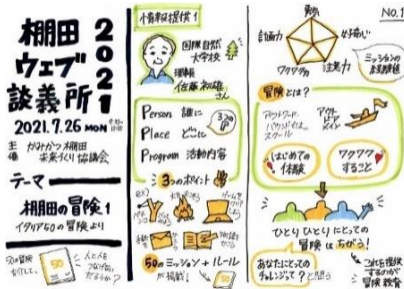 棚田
ウェブ
談義所
2021
2021.7.26 MON
主催
かみかつ棚田
未来づくり協議会
テーマ
棚田の冒険1
イタリア50の冒険より
50の冒険
50
情報提供1
国際自然
大学校
理事長
佐藤初雄
さん
Person 誰に
Place どこに
Program 活動内容
3つのP
3つのポイント
50のミッション+ルール
が掲載!
50
No.1
勇気
計画力
好奇心
ワクワク力
注意力
ミッションの
冒険とは?
アウトワード
バウンド
スクール
アウト
ドア
メイン
はじめての
体験
ワクワク
すること
ひとりひとりにとっての
冒険はちがう!
あなたにとっての
チャレンジって?と問う
これを提供
するのが
冒険教育